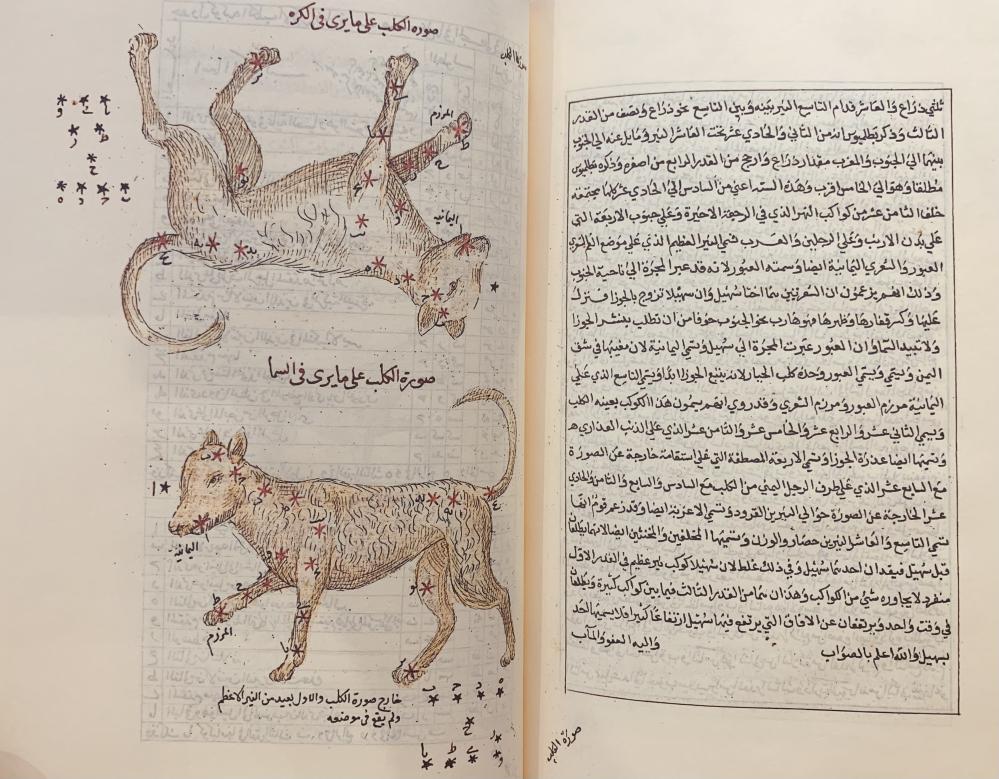 صورة الكلب على ما يرى فى الكره
المرزم
اليمانيه
صورة الكلب على ما يرى فى السما
اليمانيه
المرزم
خارج صورة الكلب والاول بعيد من النير الاعظم
ولم يقع فى موضعه
ثلثى ذراع والعاشر قدام التاسع النير بينه وبين التاسع نحو ذراع ونصف من القدر
الثالث وذكر بطليوس انه من الثانى والحادى عشر تحت العاشر النير ومايل عنه الى الجنوب
بينهما الى الجنوب والمغرب مقدار ذراع وارجح من القدر الرابع من اصغره وذكره بطليوس
مطلقا وهو الى الخامس اقرب وهذه الستة اعنى من السادس الى الحادى عشر كلها مجتمعة
خلف الثامن عشر من كواكب النهر الذى فى الرجعة الاخيرة وعلى جنوب الاربعة التى
على بدن الارنب وعلى الرجلين والعرب تسمى النير العظيم الذى على موضع الفم الشعرى
العبور والشعرى اليمانية ايضا وسمته العبور لانه قد عبر المجرة الى ناحية الجنوب
وذلك انهم يزعمون ان الشعريين هما اختا سهيل وان سهيلا تزوج بالجوزا فنزل
عليها وكسر فقارها وظهرها فهو هارب نحو الجنوب خوفا من ان تطلب بنشر الجوزا
وان العبور عبرت المجرة الى سهيل وتسمى اليمانية لان مغيبها فى شق
اليمن وتسمى العبور وحده كلب الجبار لانه يتبع الجوزا ابدا وتسمى التاسع الذى على
اليمانية مرزم العبور ومرزم الشعرى وقد روى انهم يسمون هذا الكوكب بعينه الكلب
ويسمى الثانى عشر والرابع عشر والخامس عشر والثامن عشر الذى على الذنب العذارى
وتسميها ايضا عذرة الجوزا وتسمى الاربعة المصطفة التى على استقامة خارجة عن الصورة
مع السابع عشر الذى على طرف الرجل اليمنى من الكلب مع السادس والسابع والثامن والحادى
عشر الخارجة عن الصورة حوالى النيرين القرود وتسمى الاغربة ايضا وقد زعم قوم انها
تسمى التاسع والعاشر النيرين حضار والوزن وتسميها المحلفين والمحنثين ايضا لانهما يطلعان
قبل سهيل فيقدر ان احدهما سهيل وفى ذلك غلط لان سهيلا كوكب نير عظيم فى القدر الاول
منفرد لا يجاوره شئ من الكواكب وهذان هما من القدر الثالث فيما بين كواكب كثيرة ويطلعان
فى وقت واحد ويرتفعان عن الافاق التى يرتفع فيها سهيل ارتفاعا كثيرا فلا يسميها احد
بسهيل والله اعلم بالصواب واليه العفو والمآب
صورة الكلب